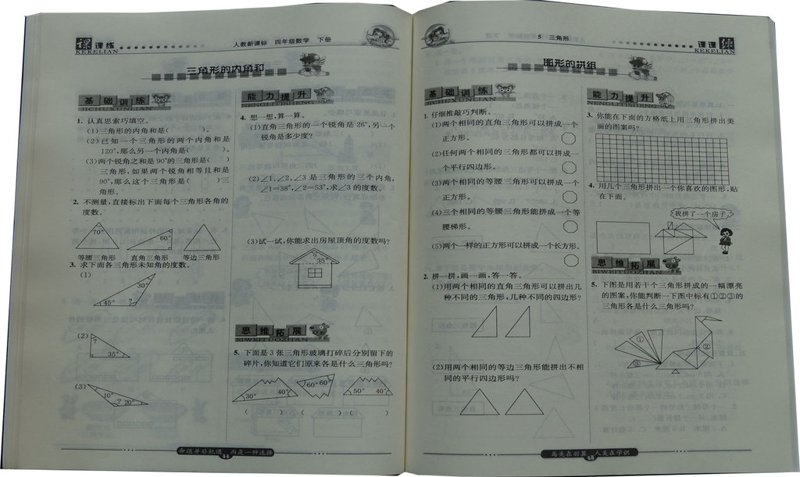 课课练
KEKELIAN
人教新课标 四年级数学 下册
三角形的内角和
基础训练
1. 认真思索巧填空。
(1)三角形的内角和是( )。
(2)已知一个三角形的两个内角和是
120°,那么另一个内角是( )。
(3)两个锐角之和是90°的三角形是( )
三角形,如果两个锐角相等且和是
90°,那么这个三角形是( )三
角形。
2. 不测量,直接标出下面每个三角形各角的
度数。
70°
60°
等腰三角形 直角三角形 等边三角形
3. 求下面各三角形未知角的度数。
(1)
30°
40°
?
(2)
?
35°
(3)
10°
?
20°
能力提升
4. 想一想,算一算。
(1)直角三角形的一个锐角是26°,另一个
锐角是多少度?
(2)∠1,∠2,∠3是三角形的三个内角,
∠1=38°,∠2=53°,求∠3的度数。
(3)试一试,你能求出房屋顶角的度数吗?
?
35°
思维拓展
5. 下面是3张三角形玻璃打碎后分别留下的
碎片,你知道它们原来各是什么三角形吗?
30°
40°
60°
60°
50°
40°
( ) ( ) ( )
5 三角形
课课练
KEKELIAN
图形的拼组
基础训练
1. 仔细推敲巧判断。
(1)两个相同的直角三角形可以拼成一个
正方形。
(2)任何两个相同的三角形都可以拼成一
个平行四边形。
(3)两个相同的等腰三角形可以拼成一个
正方形。
(4)三个相同的等腰三角形能拼成一个等
腰梯形。
(5)两个一样的正方形可以拼成一个长方形。
2. 拼一拼,画一画,答一答。
(1)用两个相同的直角三角形可以拼出几
种不同的三角形,几种不同的四边形?
(2)用两个相同的等边三角形能拼出不相
同的平行四边形吗?
能力提升
3. 你能在下面的方格纸上用三角形拼出美
丽的图案吗?
4. 用几个三角形拼出一个你喜欢的图形,贴
在下面。
我拼了一个房子
思维拓展
5. 下图是用若干个三角形拼成的一幅漂亮
的图案,你能判断一下图中标有①②③的
三角形各是什么三角形吗?
①
②